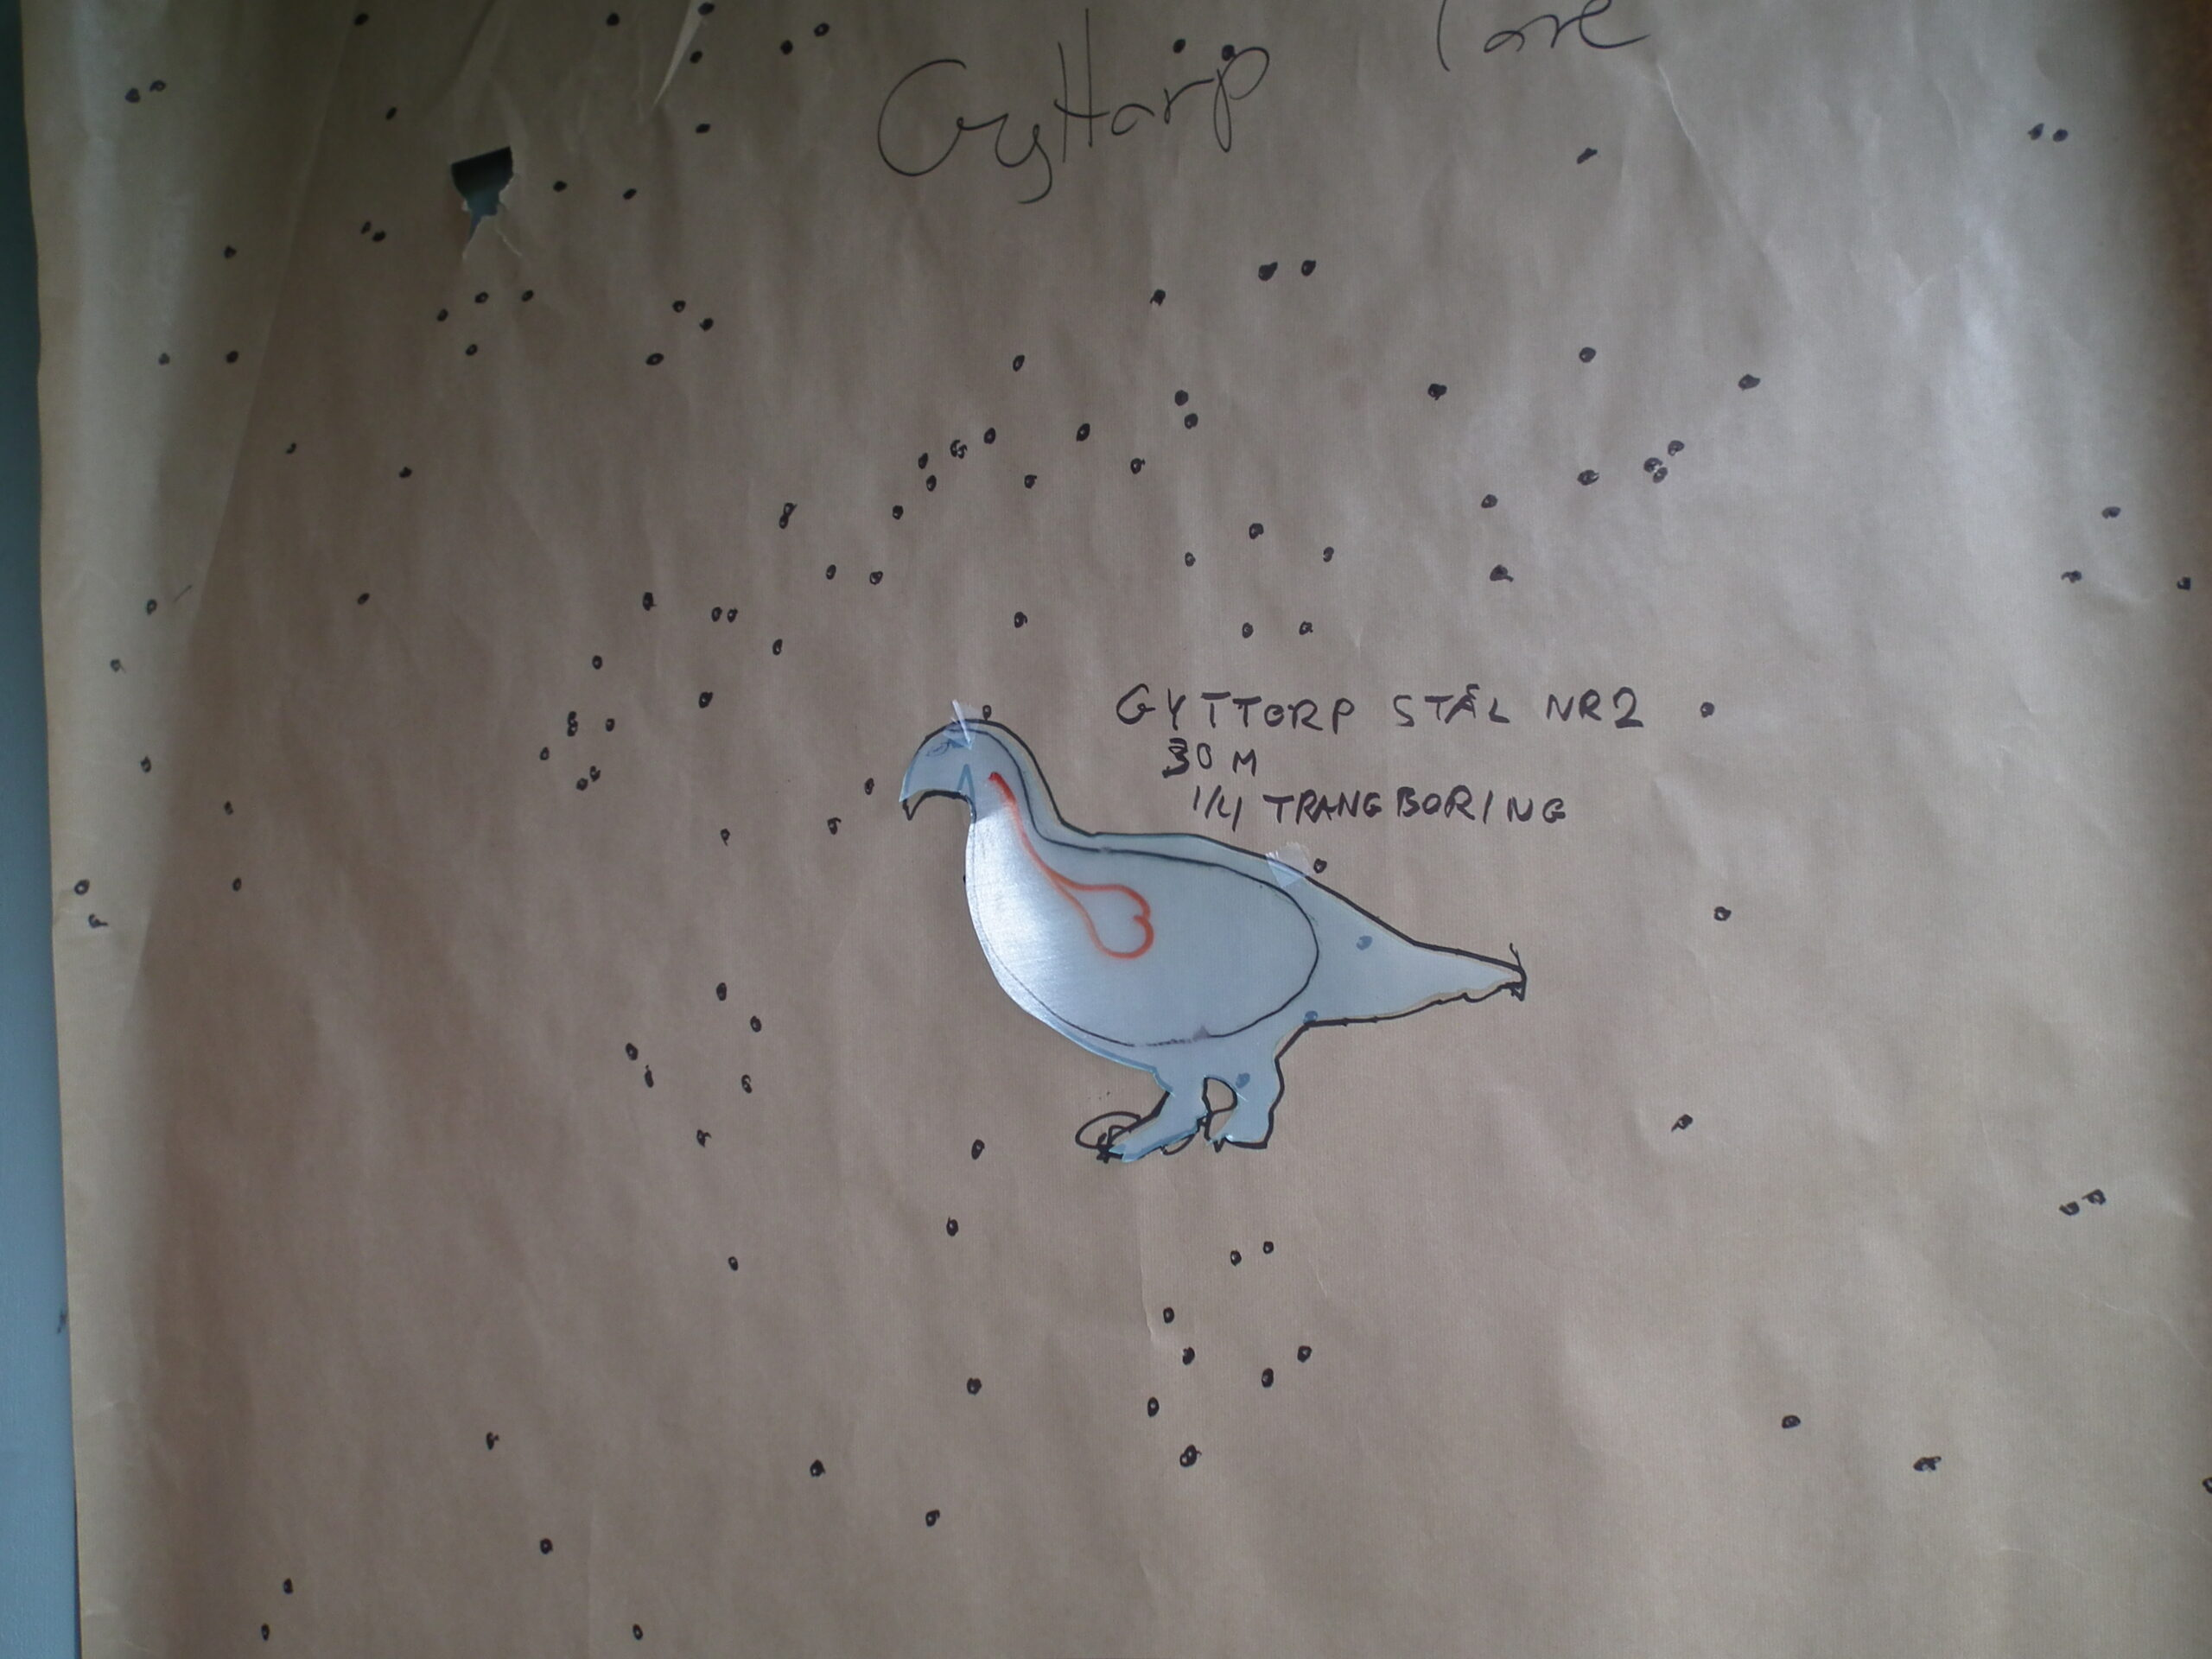 Gyttorp Tore
GYTTORP STÅL NR2
30 M
1/4 TRANGBORING